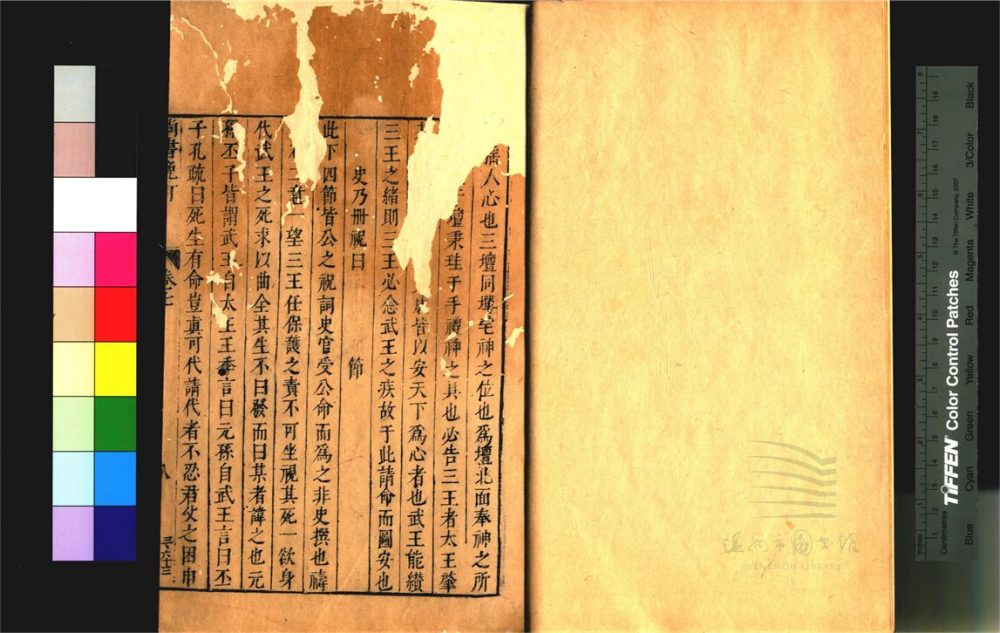 人心也三壇同墠宅神之位也爲壇北面奉神之所
壇秉珪于手禮神之具也必告三王者太王肇
皆以安天下爲心者也武王能纘
三王之緒則三王必念武王之疾故于此請命而圖安也
史乃冊祝曰 節
此下四節皆公之祝詞史官受公命而爲之非史撰也禱
二意一望三王任保護之責不可坐視其死一欲身
代武王之死求以曲全其生不曰發而曰某者諱之也元
孫丕子皆謂武王自太王王季言曰元孫自武王言曰丕
子孔疏曰死生有命豈眞可代請代者不忍君父之困申
尚書晚訂
卷七
八
三六十三
温州市图书馆
WENZHOU LIBRARY
TIFFEN Color Control Patches
© The Tiffen Company, 2007
Inches
Centimetres
Blue
Cyan
Green
Yellow
Red
Magenta
White
3/Color
Black